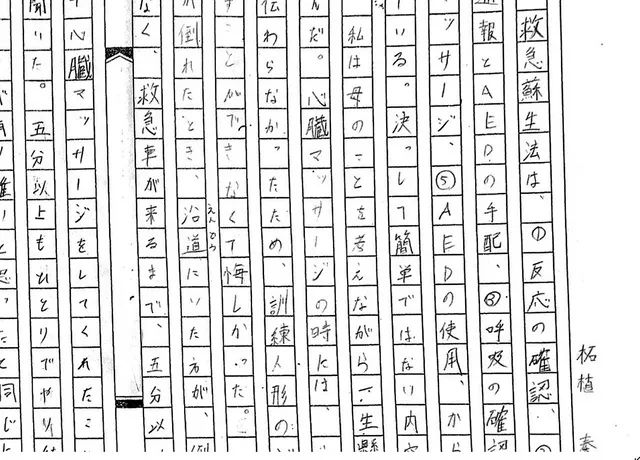 柘植
救急蘇生法は、①反応の確認、
報とAEDの手配、③呼吸の確認
ッサージ、⑤AEDの使用、から
いる。決っして簡単ではない内
私は母のことを考えながら一生懸
んだ。心臓マッサージの時には、
伝わらなかったため、訓練人形の
すことができなくて悔しかった。
が倒れたとき、沿道にいた方が、倒
えんどう
なく、救急車が来るまで、五分以
心臓マッサージをしてくれたこ
聞いた。五分以上もひとりでやり続